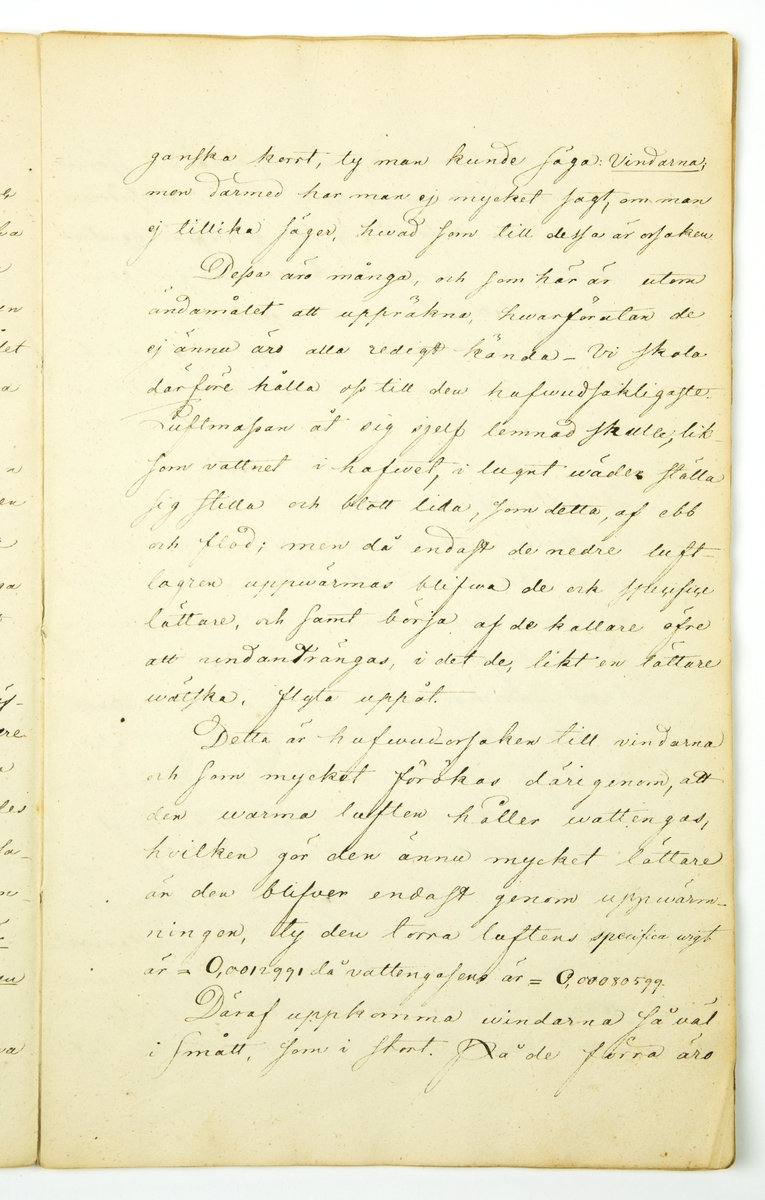 ganska kort, ty man kunde säga: Vindarna;
men därmed har man ej mycket sagt, om man
ej tillika säger, hvad som till dessa är orsaken
Dessa äro många, och som här är utom
ändamålet att uppräkna, hwarförutan de
ej ännu äro alla redigt kända – Vi skola
därföre hålla oss till den hufwudsakligaste.
Luftmassan åt sig sjelf lemnad skulle, lik-
som vattnet i hafwet, i lugnt wäder ställa
sig stilla och blott lida, som detta, af ebb
och flod; men då endast de nedre luft-
lagren uppwärmas blifwa de ock specifice
lättare, och samt börja af de kallare öfre
att undanträngas, i det de, likt en lättare
wätska, flyta uppåt.
Detta är hufwudorsaken till vindarna
och som mycket förökas därigenom, att
den warma luften håller wattengas,
hvilken gör den ännu mycket lättare
än den blifver endast genom uppwärm-
ningen, ty den torra luftens specifica wigt
är = 0,0012991 då vattengasens är = 0,00080599.
Däraf uppkomma windarna så väl
i smått, som i stort. På de förra äro